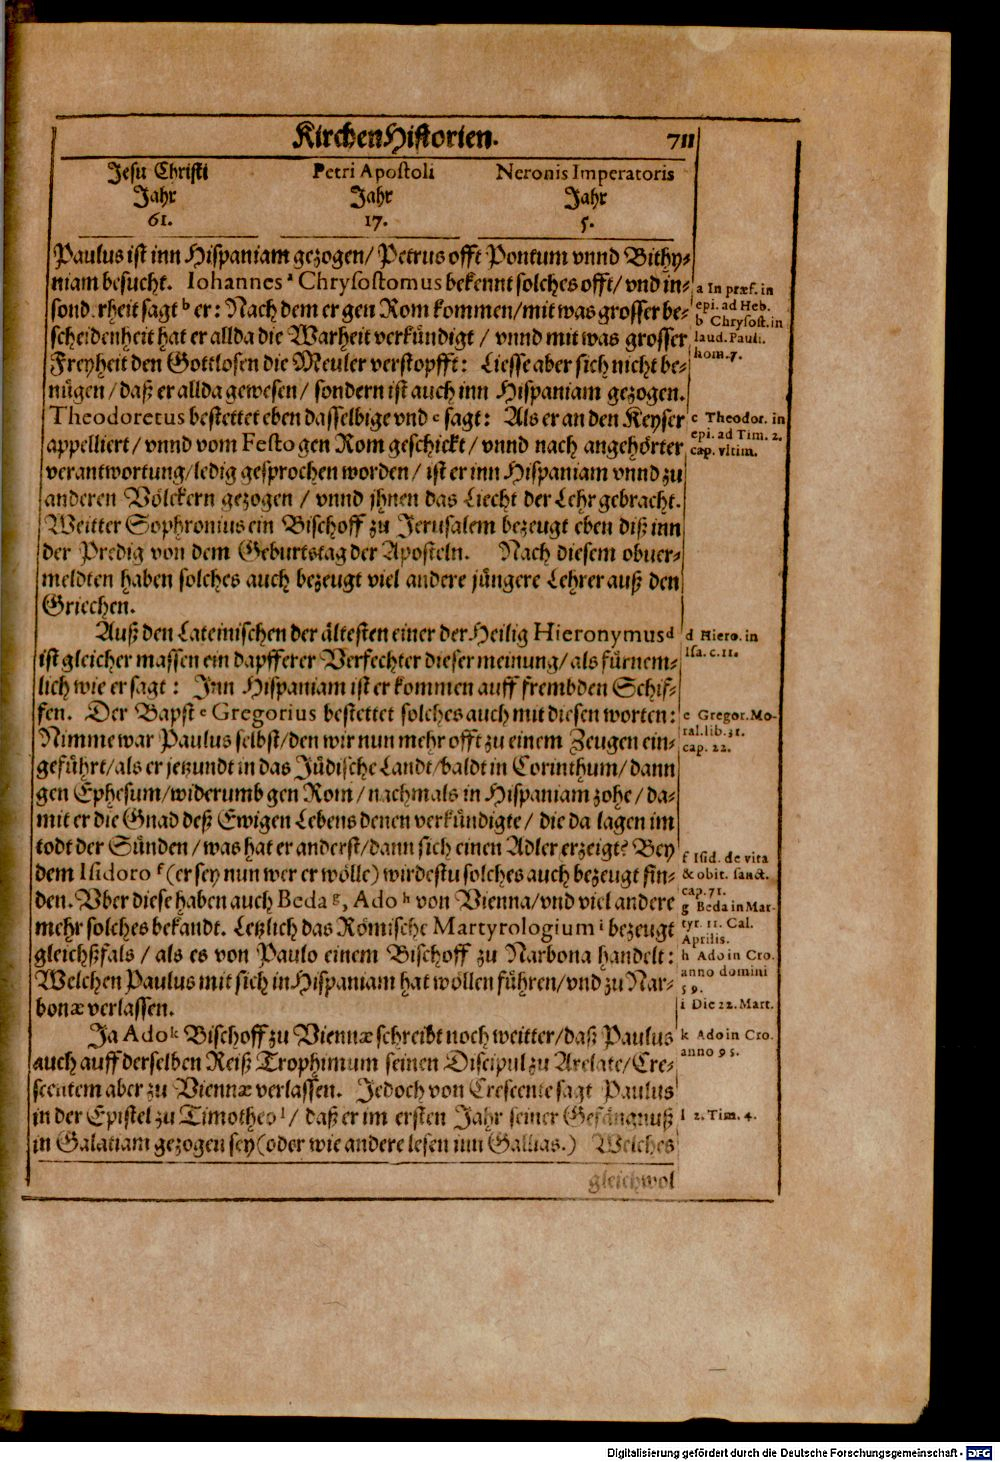 KirchenHistorien. 711
Jesu Christi Petri Apostoli Neronis Imperatoris
Jahr Jahr Jahr
61. 17. 5.
Paulus ist inn Hispaniam gezogen/ Petrus offt Pontum vnnd Bithy-
niam besucht. Iohannes a Chrysostomus bekennt solches offt/ vnd in-
sonderheit sagt b er: Nach dem er gen Rom kommen/ mit was grosser be-
scheidenheit hat er allda die Warheit verkündigt / vnnd mit was grosser
Freyheit den Gottlosen die Meuler verstopfft: Liesse aber sich nicht be-
nügen / daß er allda gewesen/ sondern ist auch inn Hispaniam gezogen.
Theodoretus bestettet eben dasselbige vnd c sagt: Als er an den Keyser
appelliert/ vnnd vom Festo gen Rom geschickt/ vnnd nach angehörter
verantwortung/ ledig gesprochen worden/ ist er inn Hispaniam vnnd zu
anderen Völckern gezogen / vnnd jhnen das Liecht der Lehr gebracht.
Weitter Sophronius ein Bischoff zu Jerusalem bezeugt eben diß inn
der Predig von dem Geburtstag der Aposteln. Nach diesem obuer-
meldten haben solches auch bezeugt viel andere jüngere Lehrer auß den
Griechen.
Auß den Lateinischen der ältesten einer der Heilig Hieronymus d
ist gleicher massen ein dapfferer Verfechter dieser meinung/ als fürnem-
lich wie er sagt: Inn Hispaniam ist er kommen auff frembden Schif-
fen. Der Bapst e Gregorius bestettet solches auch mit diesen worten:
Nimme war Paulus selbst/ den wir nun mehr offt zu einem Zeugen ein-
geführt/ als er jetzundt in das Jüdische Landt/ baldt in Corinthum/ dann
gen Ephesum/ widerumb gen Rom/ nachmals in Hispaniam zohe/ da-
mit er die Gnad deß Ewigen Lebens denen verkündigte/ die da lagen im
todt der Sünden/ was hat er anderst/ dann sich einen Adler erzeigt? Bey
dem Isidoro f (er sey nun wer er wölle) wirdestu solches auch bezeugt fin-
den. Vber diese haben auch Beda g, Ado h von Vienna/ vnd viel andere
mehr solches bekandt. Letzlich das Römische Martyrologium i bezeugt
gleichßfals / als es von Paulo einem Bischoff zu Narbona handelt:
Welchen Paulus mit sich in Hispaniam hat wöllen führen/ vnd zu Nar-
bonæ verlassen.
Ja Ado k Bischoff zu Viennæ schreibt noch weitter/ daß Paulus
auch auff derselben Reiß Trophimum seinen Discipul zu Arelate/ Cre-
scentem aber zu Viennæ verlassen. Jedoch von Crescente sagt Paulus
in der Epistel zu Timotheo l/ daß er im ersten Jahr seiner Gefängnuß
in Galatiam gezogen sey (oder wie andere lesen inn Gallias.) Welches
gleichwol
a In præf. in
epi. ad Heb.
b Chrysost. in
laud. Pauli.
hom. 7.
c Theodor. in
epi. ad Tim. 2.
cap. vltim.
d Hiero. in
Isa. c. 11.
e Gregor. Mo-
ral. lib. 31.
cap. 22.
f Isid. de vita
& obit. sanct.
cap. 71.
g Beda in Mar-
tyr. 11. Cal.
Aprilis.
h Ado in Cro.
anno domini
59.
i Die 22. Mart.
k Ado in Cro.
anno 95.
l 2. Tim. 4.
Digitalisierung gefördert durch die Deutsche Forschungsgemeinschaft - DFG